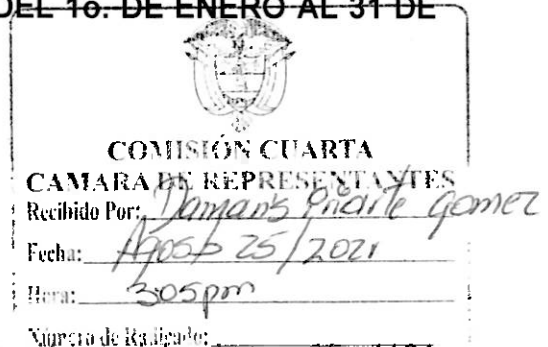 DEL 1o. DE ENERO AL 31 DE
COMISIÓN CUARTA
CAMARA DE REPRESENTANTES
Recibido Por: Damaris Gomez
Fecha: Agosto 25/2021
Hora: 3:05pm
Número de Radicado: